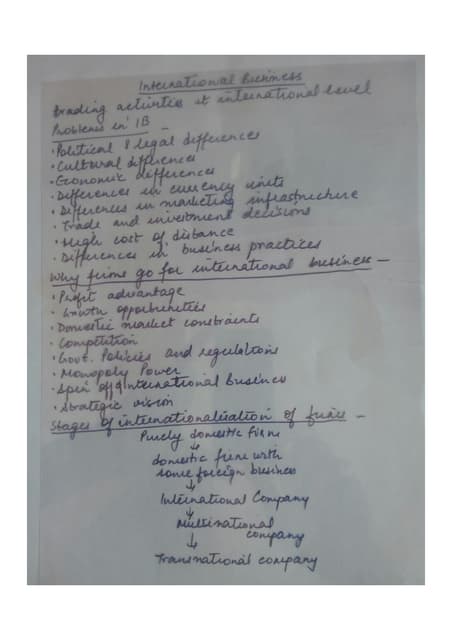 International Business
Trading activities at international level
Problems in IB -
• Political & legal differences
• Cultural differences
• Economic differences
• Differences in currency units
• Differences in marketing infrastructure
• Trade and investment decisions
• High cost of distance
• Differences in business practices
Why firms go for international business -
• Profit advantage
• Growth opportunities
• Domestic market constraints
• Competition
• Govt. Policies and regulations
• Monopoly Power
• Spin off of International Business
• Strategic vision
Stages of internationalization of firms -
Purely domestic firm
↓
domestic firm with
some foreign business
↓
International Company
↓
Multinational
company
↓
Transnational company